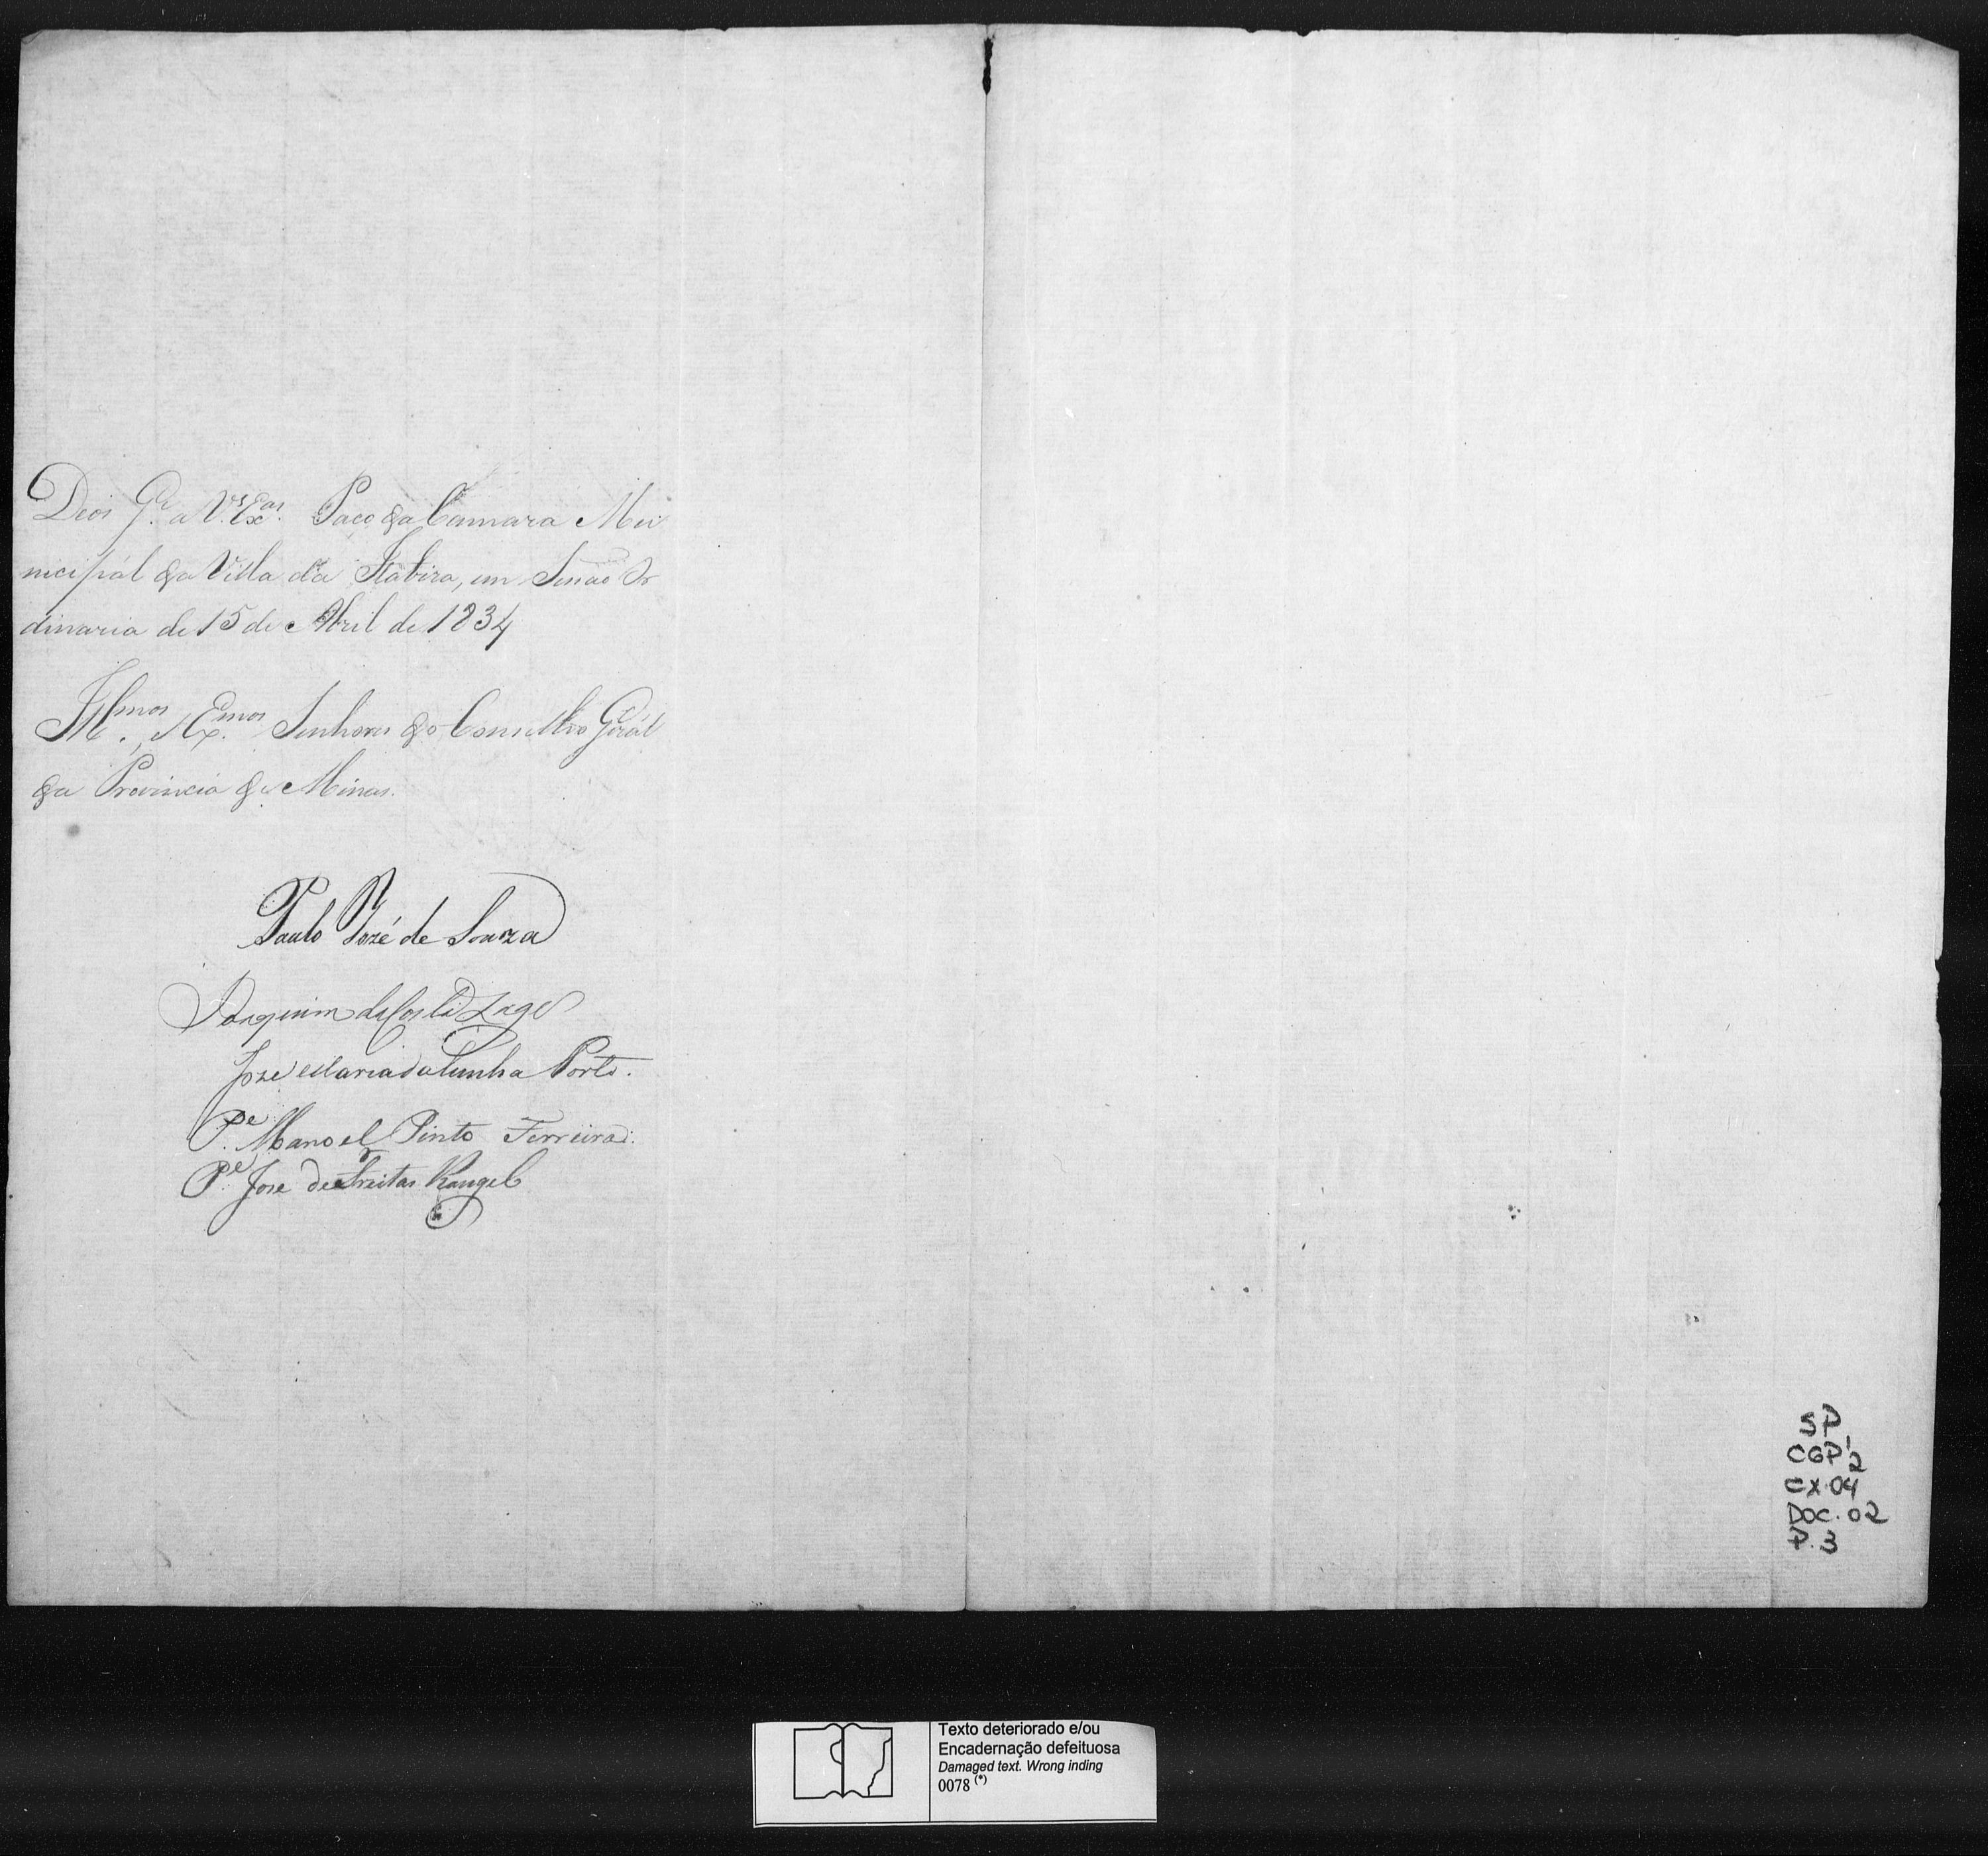 Deos G.e a V.as Ex.as. Paço da Camara Mu
nicipál da Villa da Itabira, em Sessão Or
dinaria de 15 de Abril de 1834
Ill.mos, e Ex.mos Senhores do Conselho Gerál
da Provincia de Minas.
Paulo Jozé de Souza
Joaquim da Costa Lage
Joze Maria da Cunha Porto.
P.e Manoel Pinto Ferreira.
P.e Jose de Freitas Rangel
SP
CGP 1/2
CX.04
DOC.02
P.3
Texto deteriorado e/ou
Encadernação defeituosa
Damaged text. Wrong inding
0078 (*)